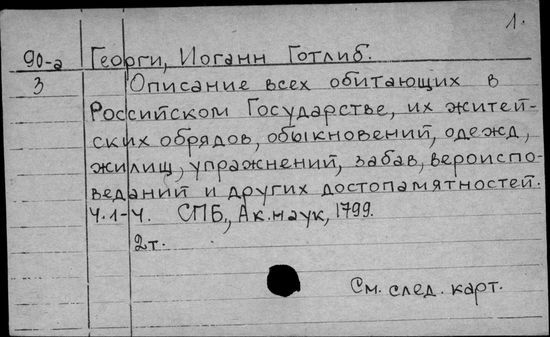 1.
90-а Георги, Иоганн Готлиб.
3 Описание всех обитающих в
Российском Государстве, их житей-
ских обрядов, обыкновений, одежд,
жилищ, упражнений, забав, вероиспо-
веданий и других достопамятностей.
Ч. 1-4. СПБ., Ак. наук, 1799.
2т.
См. след. карт.